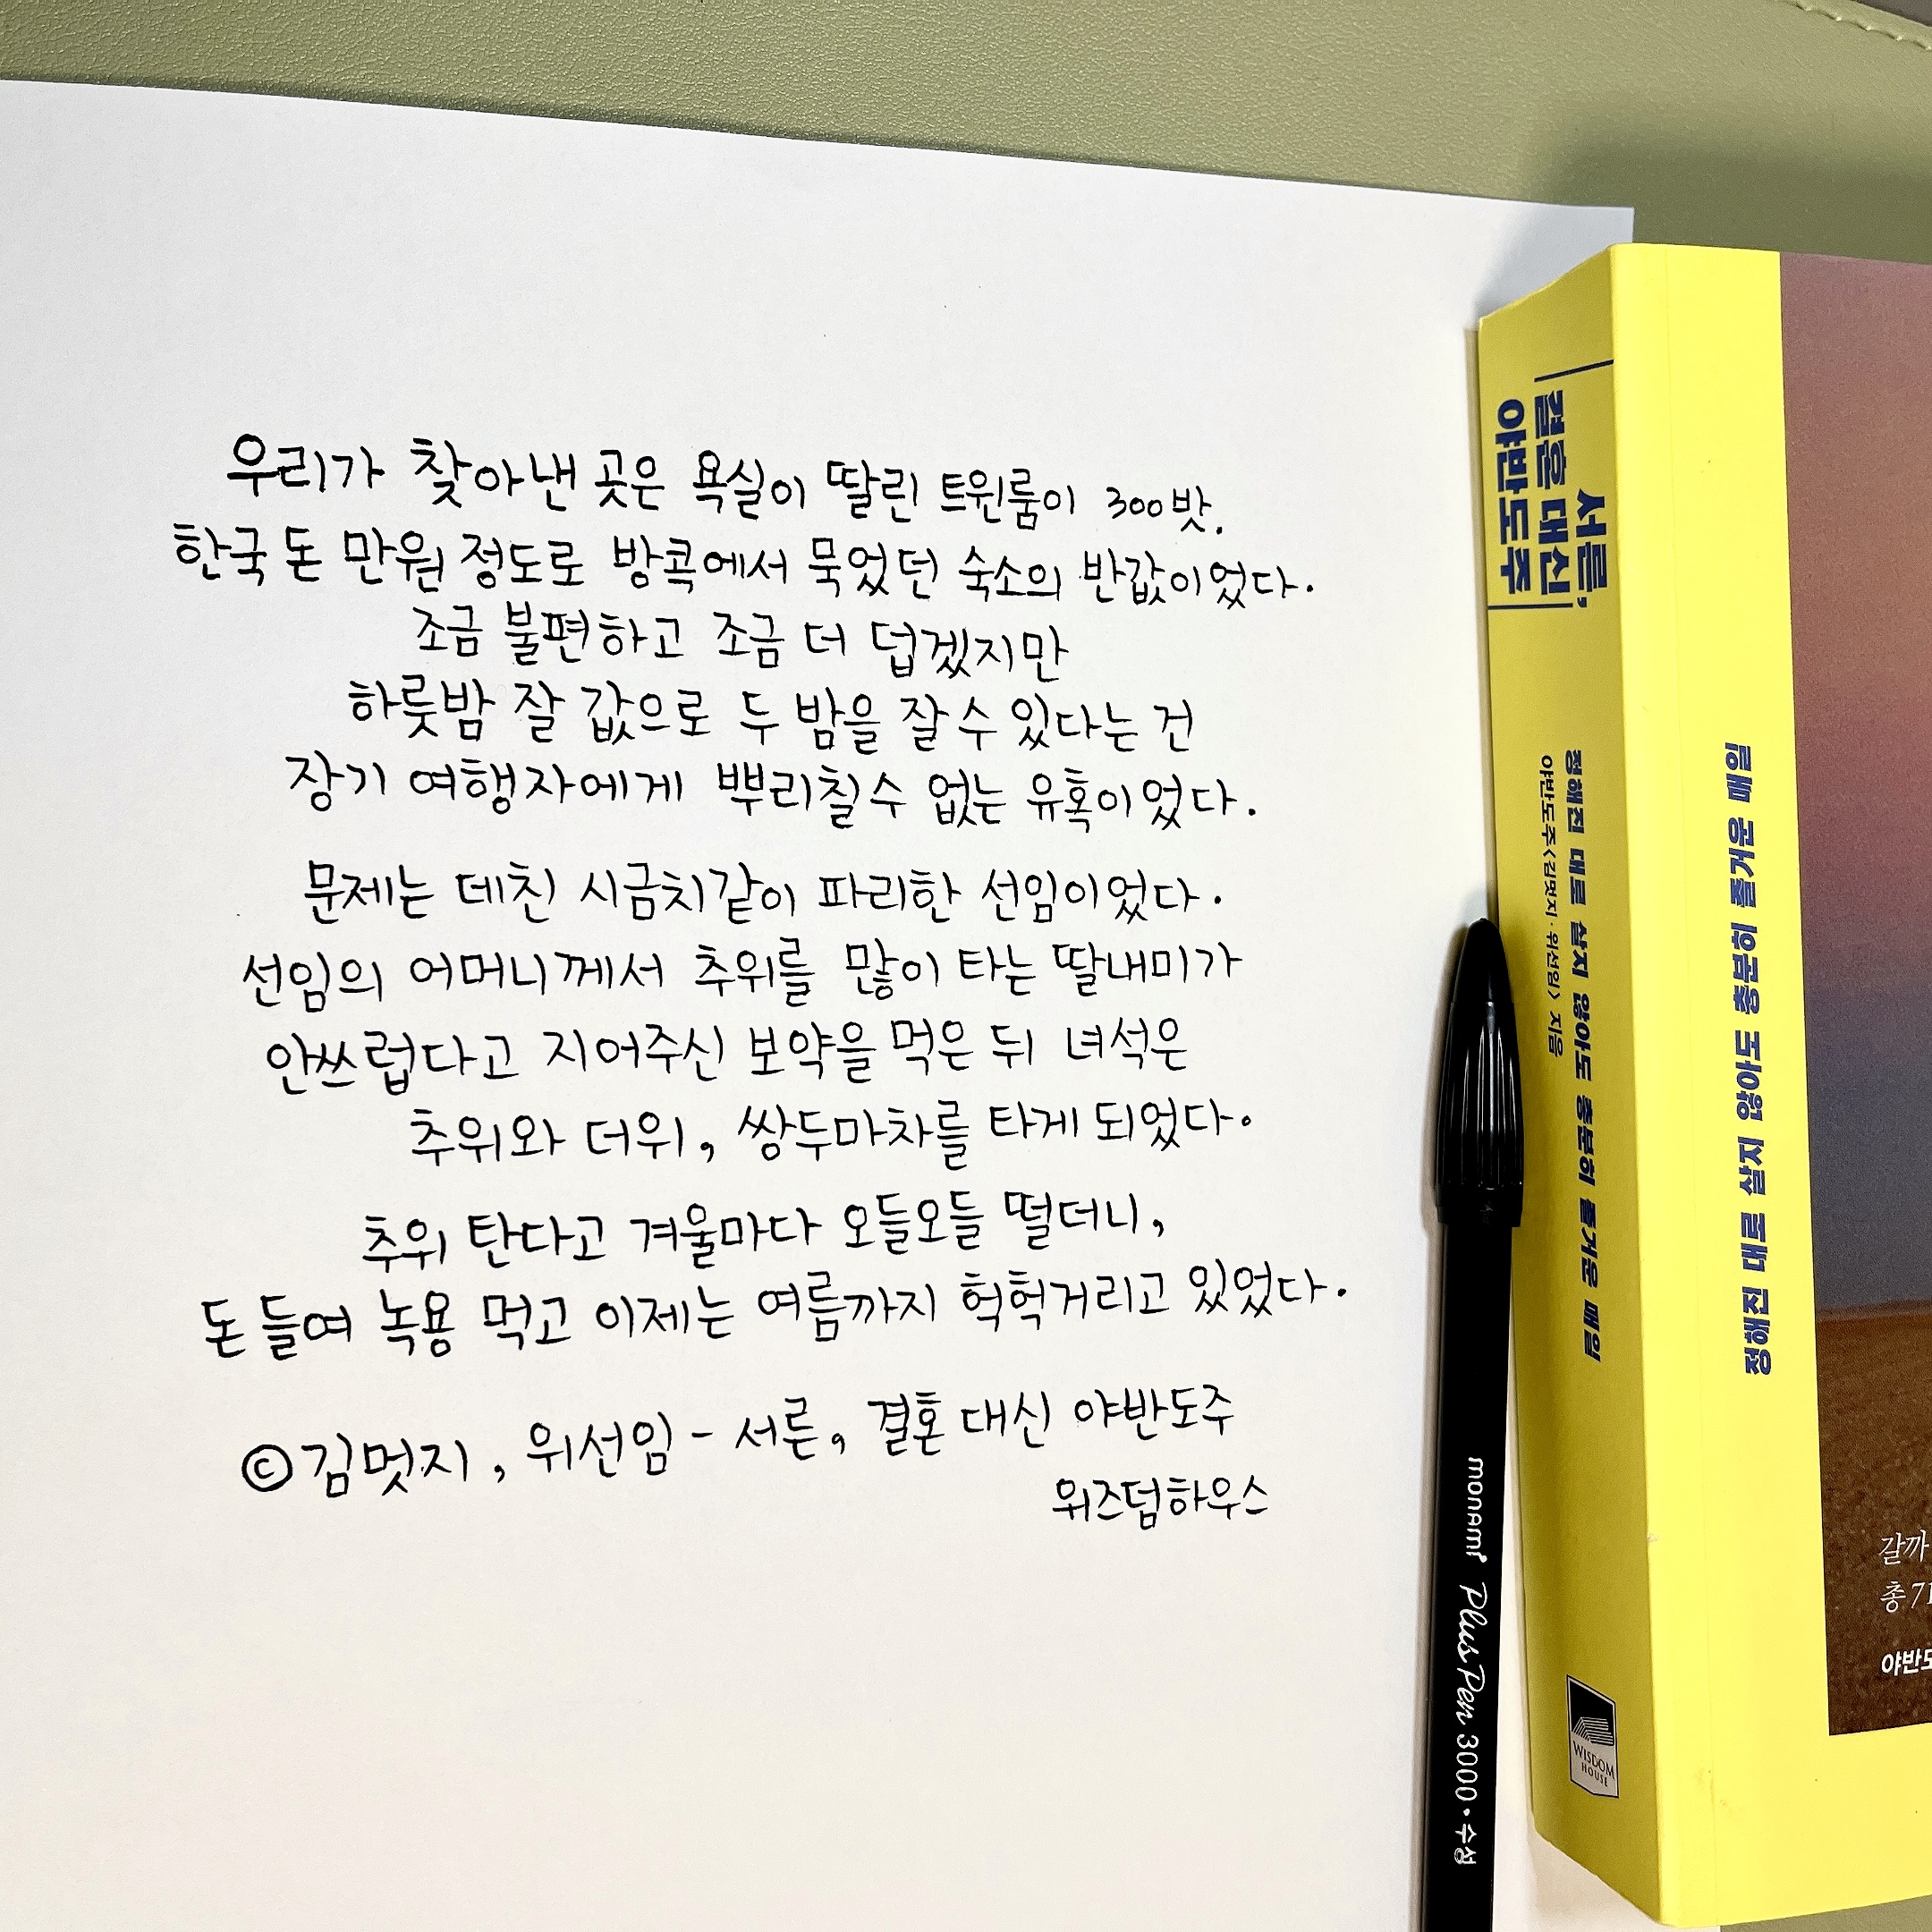 우리가 찾아낸 곳은 욕실이 딸린 트윈룸이 300밧.
한국 돈 만원 정도로 방콕에서 묵었던 숙소의 반값이었다.
조금 불편하고 조금 더 덥겠지만
하룻밤 잘 값으로 두 밤을 잘 수 있다는 건
장기 여행자에게 뿌리칠 수 없는 유혹이었다.
문제는 데친 시금치같이 파리한 선임이었다.
선임의 어머니께서 추위를 많이 타는 딸내미가
안쓰럽다고 지어주신 보약을 먹은 뒤 녀석은
추위와 더위, 쌍두마차를 타게 되었다.
추위 탄다고 겨울마다 오들오들 떨더니,
돈 들여 녹용 먹고 이제는 여름까지 헉헉거리고 있었다.
©김멋지, 위선임 - 서른, 결혼 대신 야반도주
위즈덤하우스
서른,
결혼 대신
야반도주
정해진 대로 살지 않아도 충분히 즐거운 매일
야반도주<김멋지·위선임> 지음
WISDOM
HOUSE
정해진 대로 살지 않아도 충분히 즐거운 매일
monami Plus Pen 3000 • 수성
갈까
총 71
야반도